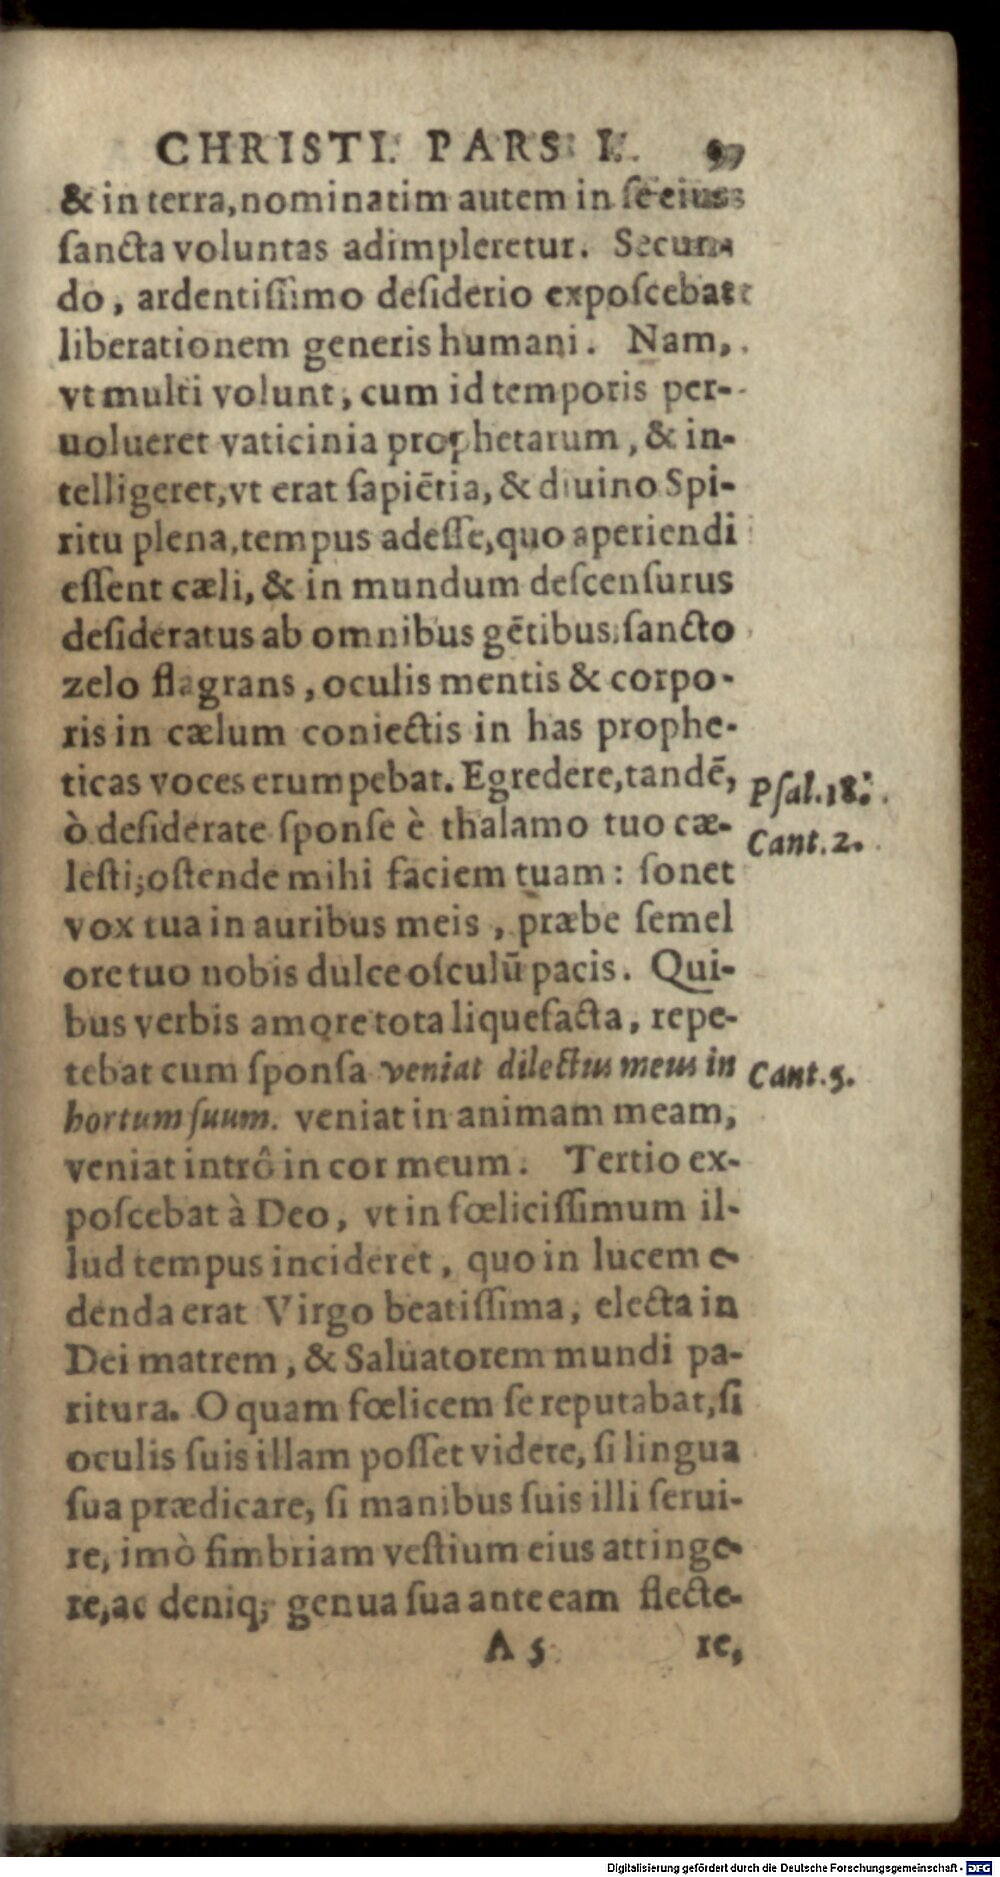 CHRISTI. PARS I.
& in terra, nominatim autem in se eius
sancta voluntas adimpleretur. Secun-
do, ardentissimo desiderio exposcebat
liberationem generis humani. Nam,
vt multi volunt, cum id temporis per-
uolueret vaticinia prophetarum, & in-
telligeret, vt erat sapiẽtia, & diuino Spi-
ritu plena, tempus adesse, quo aperiendi
essent cæli, & in mundum descensurus
desideratus ab omnibus gẽtibus: sancto
zelo flagrans, oculis mentis & corpo-
ris in cælum coniectis in has prophe-
ticas voces erumpebat. Egredere, tandẽ,
Psal. 18.
ò desiderate sponse è thalamo tuo cæ-
Cant. 2.
lesti; ostende mihi faciem tuam: sonet
vox tua in auribus meis, præbe semel
ore tuo nobis dulce osculũ pacis. Qui-
bus verbis amore tota liquefacta, repe-
tebat cum sponsa veniat dilectus meus in
Cant. 5.
hortum suum. veniat in animam meam,
veniat intrô in cor meum. Tertio ex-
poscebat à Deo, vt in fœlicissimum il-
lud tempus incideret, quo in lucem e-
denda erat Virgo beatissima, electa in
Dei matrem, & Saluatorem mundi pa-
ritura. O quam fœlicem se reputabat, si
oculis suis illam posset videre, si lingua
sua prædicare, si manibus suis illi serui-
re, imò fimbriam vestium eius attinge-
re, ac deniq; genua sua ante eam flecte-
A 5 re,
Digitalisierung gefördert durch die Deutsche Forschungsgemeinschaft - DFG